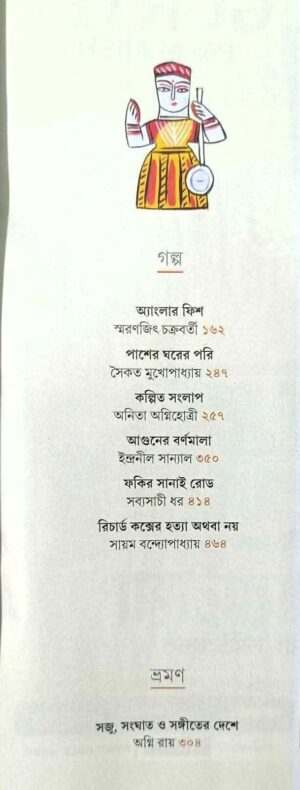 গল্প
অ্যাংলার ফিশ
স্মরণজিৎ চক্রবর্তী ১৬২
পাশের ঘরের পরি
সৈকত মুখোপাধ্যায় ২৪৭
কল্পিত সংলাপ
অনিতা অগ্নিহোত্রী ২৫৭
আগুনের বর্ণমালা
ইন্দ্রনীল সান্যাল ৩৫০
ফকির সানাই রোড
সব্যসাচী ধর ৪১৪
রিচার্ড কক্সের হত্যা অথবা নয়
সায়ম বন্দ্যোপাধ্যায় ৪৬৪
ভ্রমণ
সজু, সংঘাত ও সঙ্গীতের দেশে
অগ্নি রায় ৩০৪